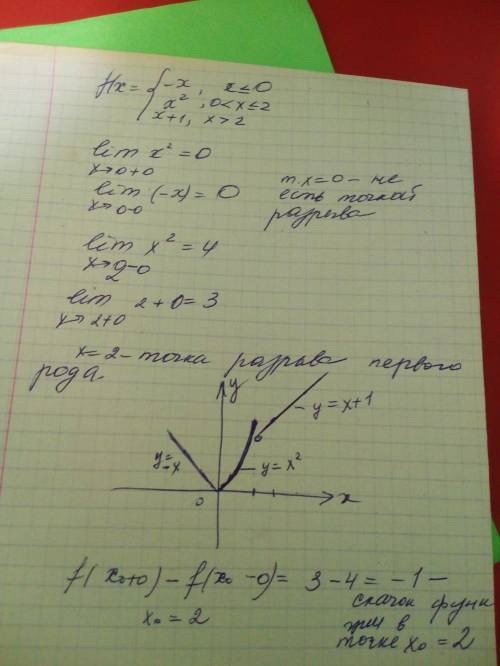 f(x = { -x, x ≤ 0
x², 0 < x ≤ 2
x+1, x > 2
lim x² = 0
x→0+0
lim (-x) = 0
x→0-0
т. x=0 - не
есть точкой
разрыва
lim x² = 4
x→2-0
lim 2+0=3
x→2+0
x=2 - точка разрыва первого
рода
y
- y = x+1
y=
-x
- y = x²
0
x
f(x₀+0) - f(x₀-0) = 3-4 = -1 -
x₀ = 2
скачок функ
ции в
точке x₀ = 2